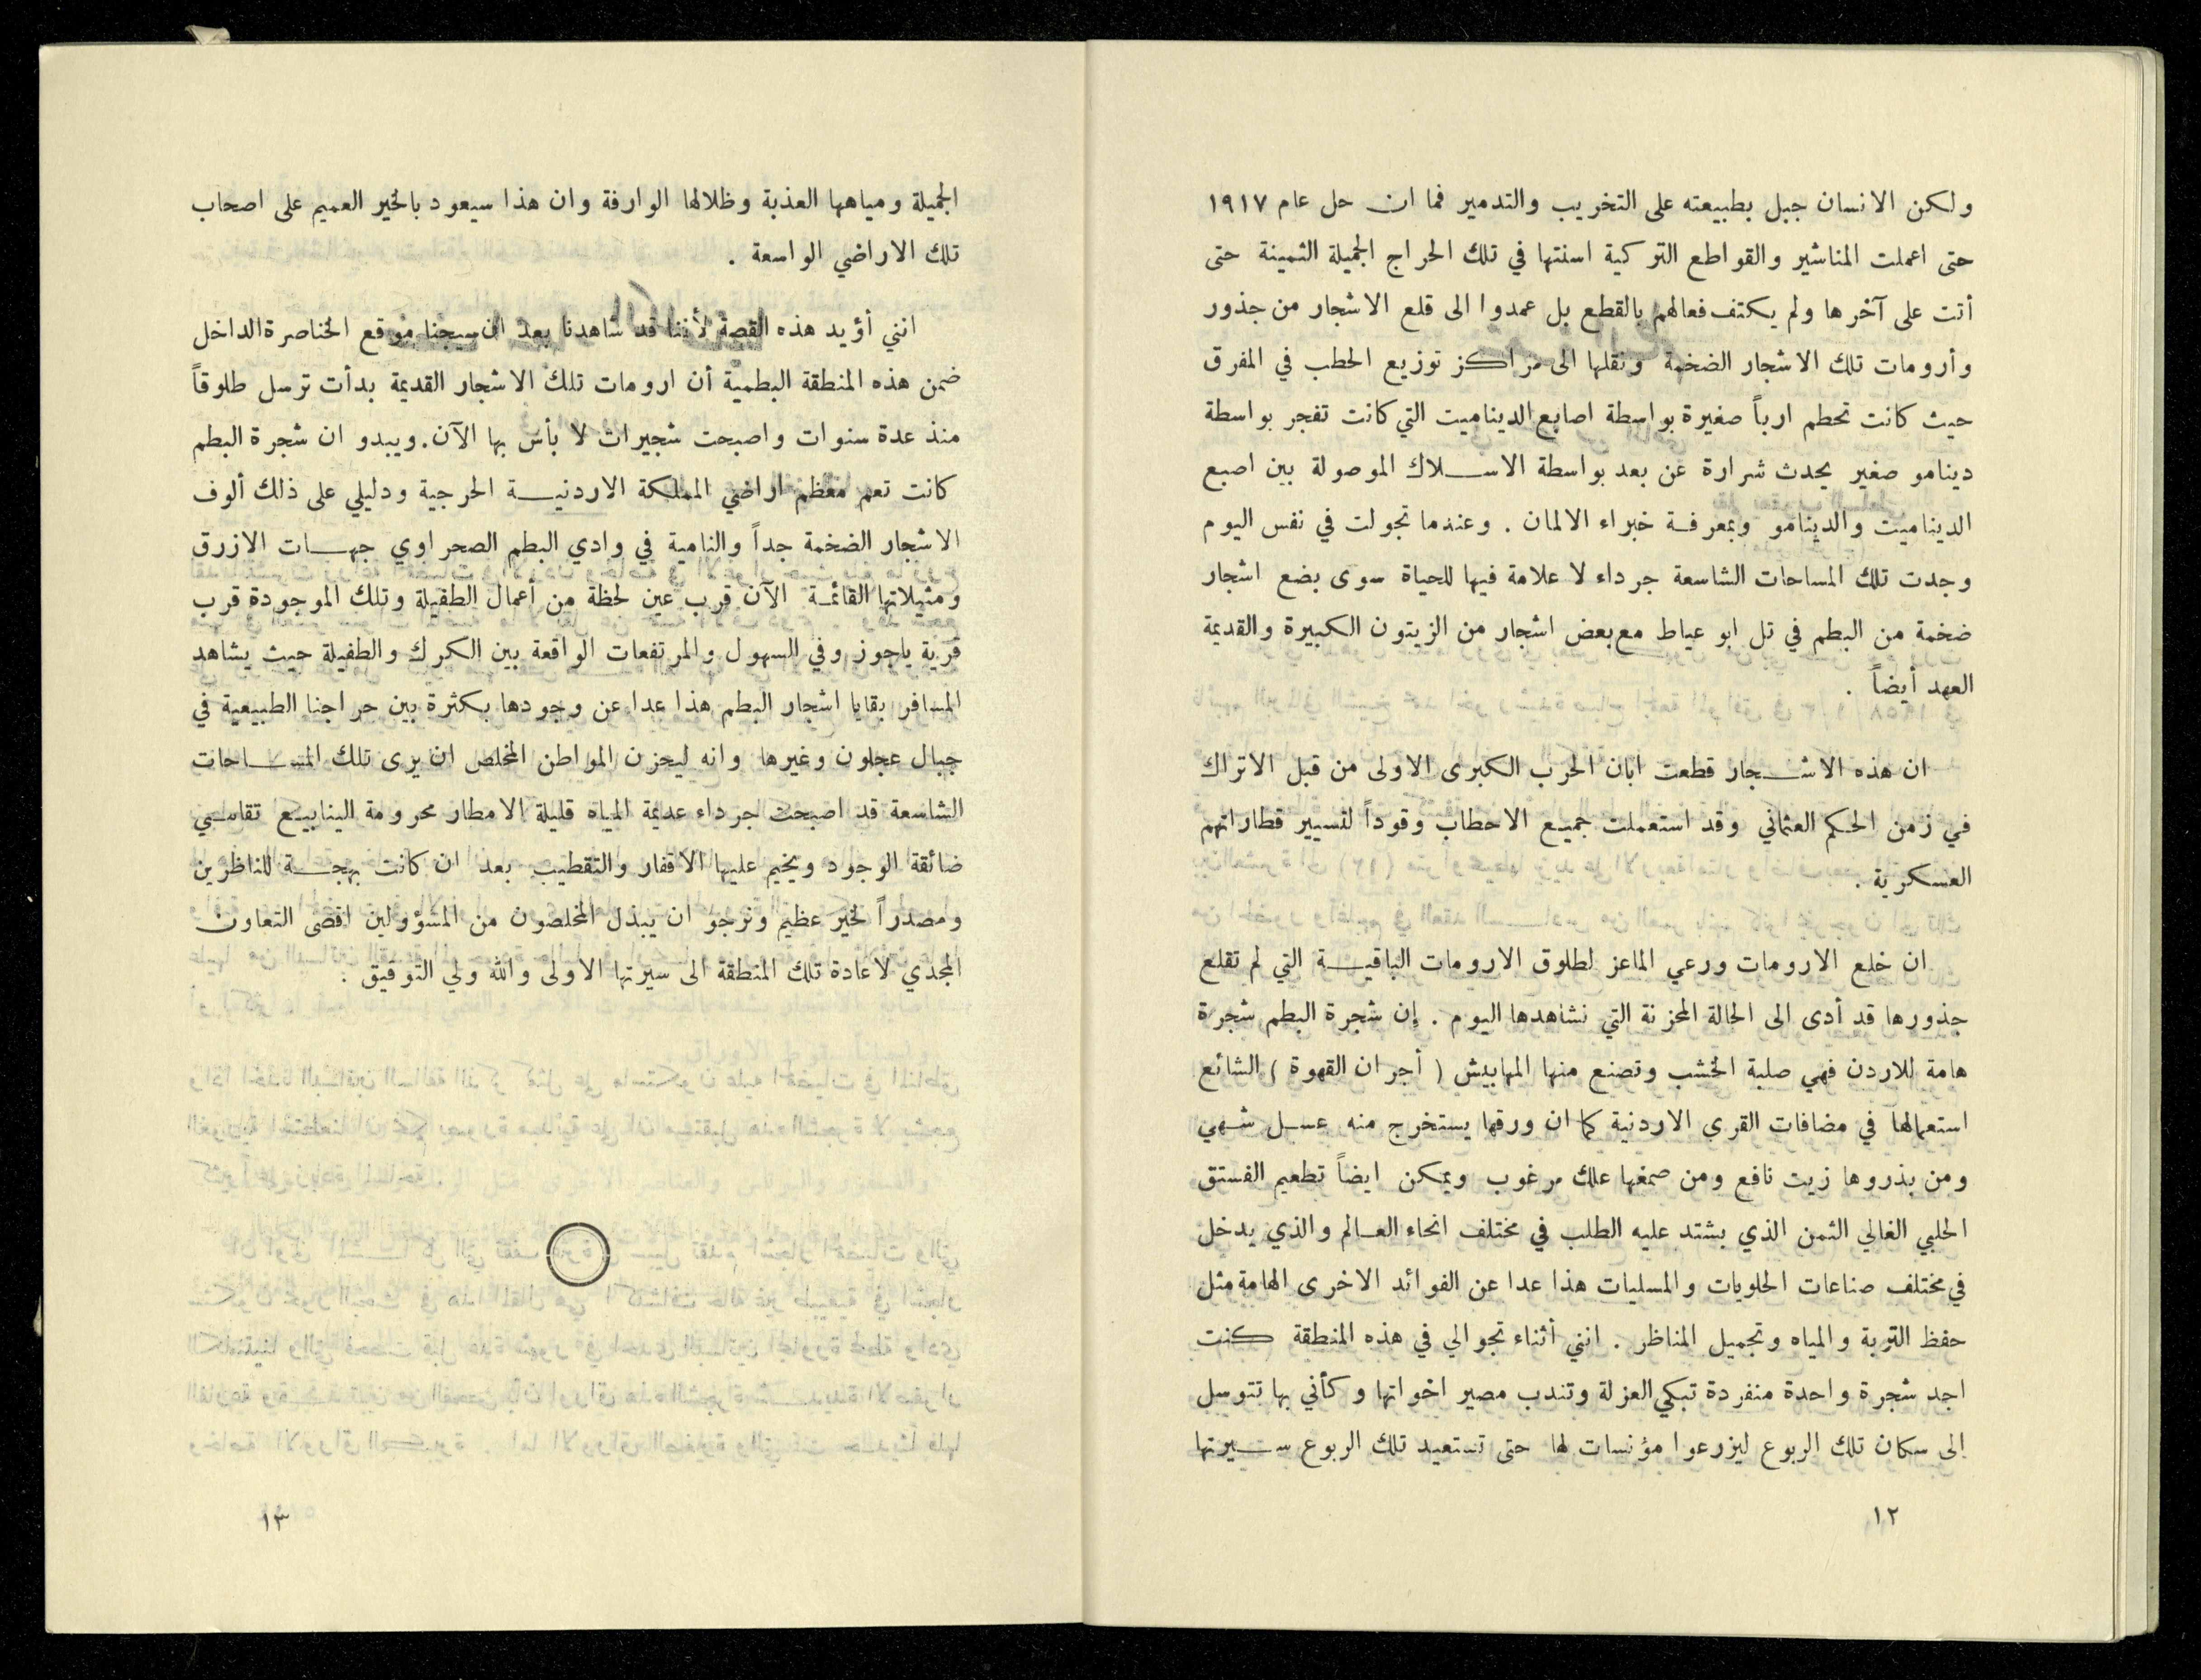 ولكن الانسان جبل بطبيعته على التخريب والتدمير فما ان حل عام ١٩١٧
حتى اعملت المناشير والقواطع التركية اسنتها في تلك الحراج الجميلة الثمينة حتى
أتت على آخرها ولم يكتف فعالهم بالقطع بل عمدوا الى قلع الاشجار من جذور
وأرومات تلك الاشجار الضخمة ونقلها الى مراكز توزيع الحطب في المفرق
حيث كانت تحطم ارباً صغيرة بواسطة اصابع الديناميت التي كانت تفجر بواسطة
دينامو صغير يحدث شرارة عن بعد بواسطة الاسلاك الموصولة بين اصبع
الديناميت والدينامو وبمعرفة خبراء الالمان . وعندما تجولت في نفس اليوم
وجدت تلك المساحات الشاسعة جرداء لا علامة فيها للحياة سوى بضع اشجار
ضخمة من البطم في تل ابو عياط مع بعض اشجار من الزيتون الكبيرة والقديمة
العهد أيضاً .
ان هذه الاشجار قطعت ابان الحرب الكبرى الاولى من قبل الاتراك
في زمن الحكم العثماني وقد استعملت جميع الاحطاب وقوداً لتسيير قطاراتهم
العسكرية .
ان خلع الارومات ورعي الماعز لطلوق الارومات الباقية التي لم تقلع
جذورها قد أدى الى الحالة المحزنة التي نشاهدها اليوم . إن شجرة البطم شجرة
هامة للاردن فهي صلبة الخشب وتصنع منها المهابيش ( أجران القهوة ) الشائع
استعمالها في مضافات القرى الاردنية كما ان ورقها يستخرج منه عسل شهي
ومن بذروها زيت نافع ومن صمغها علك مرغوب ويمكن ايضاً تطعيم الفستق
الحلبي الغالي الثمن الذي يشتد عليه الطلب في مختلف انحاء العالم والذي يدخل
في مختلف صناعات الحلويات والمسليات هذا عدا عن الفوائد الاخرى الهامة مثل
حفظ التربة والمياه وتجميل المناظر . انني أثناء تجوالي في هذه المنطقة كنت
اجد شجرة واحدة منفردة تبكي العزلة وتندب مصير اخواتها وكأني بها تتوسل
الى سكان تلك الربوع ليزرعوا مؤنسات لها حتى تستعيد تلك الربوع سيرتها
١٢
الجميلة ومياهها العذبة وظلالها الوارفة وان هذا سيعود بالخير العميم على اصحاب
تلك الاراضي الواسعة .
انني أؤيد هذه القصة لأننا قد شاهدنا بعد ان سيجنا موقع الخناصرة الداخل
ضمن هذه المنطقة البطمية أن ارومات تلك الاشجار القديمة بدأت ترسل طلوقاً
منذ عدة سنوات واصبحت شجيرات لا بأس بها الآن. ويبدو ان شجرة البطم
كانت تعم معظم اراضي المملكة الاردنية الحرجية ودليلي على ذلك ألوف
الاشجار الضخمة جداً والنامية في وادي البطم الصحراوي جهات الازرق
ومثيلاتها القائمة الآن قرب عين لحظة من أعمال الطفيلة وتلك الموجودة قرب
قرية ياجوز وفي السهول والمرتفعات الواقعة بين الكرك والطفيلة حيث يشاهد
المسافر بقايا اشجار البطم هذا عدا عن وجودها بكثرة بين حراجنا الطبيعية في
جبال عجلون وغيرها وانه ليحزن المواطن المخلص ان يرى تلك المساحات
الشاسعة قد اصبحت جرداء عديمة المياه قليلة الامطار محرومة الينابيع تقاسي
ضائقة الوجود ويخيم عليها الاقفار والتقطيب بعد ان كانت بهجة للناظرين
ومصدراً لخير عظيم ونرجو ان يبذل المخلصون من المسؤولين اقصى التعاون
المجدي لاعادة تلك المنطقة الى سيرتها الاولى والله ولي التوفيق .
١٣